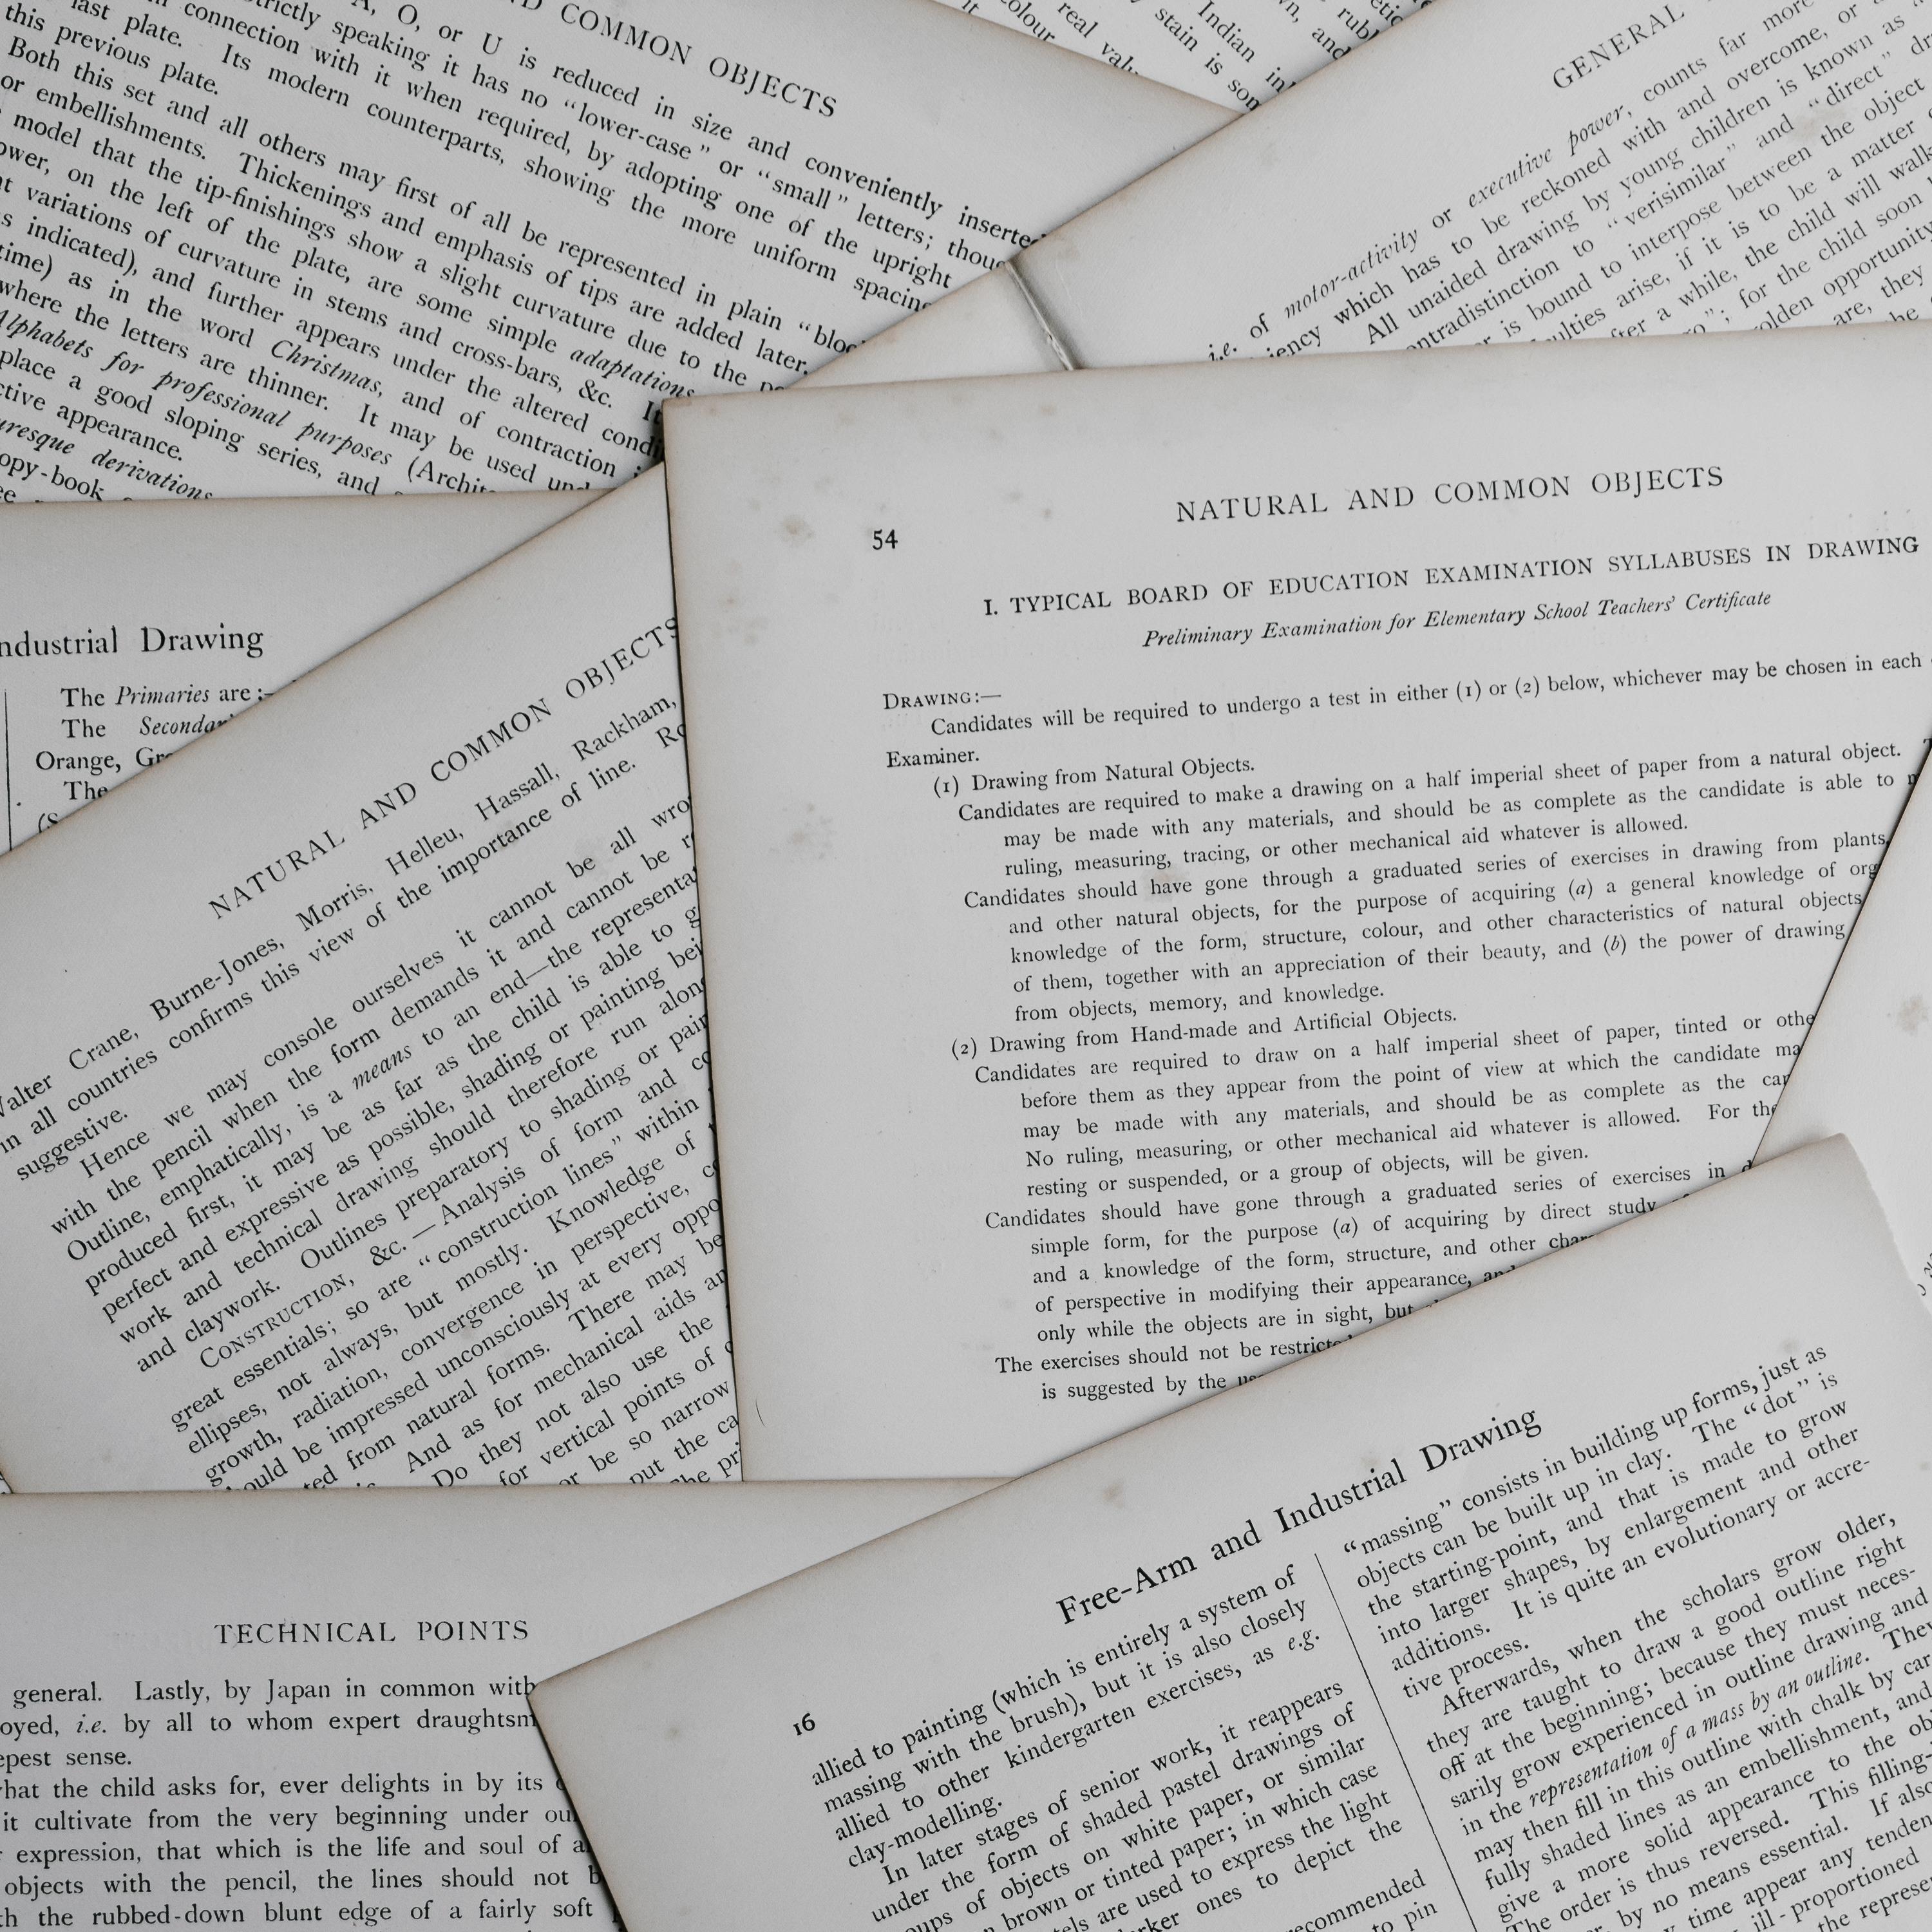 ND COMMON OBJECTS
A, O, or U is reduced in size and conveniently inserted
strictly speaking it has no “lower-case” or “small” letters; though
connection with it when required, by adopting one of the upright
last plate. Its modern counterparts, showing the more uniform spacing
this previous plate.
Both this set and all others may first of all be represented in plain “bloc
or embellishments. Thickenings and emphasis of tips are added later.
model that the tip-finishings show a slight curvature due to the
ower, on the left of the plate, are some simple adaptations
variations of curvature in stems and cross-bars, &c. It
s indicated), and further appears under the altered condi
time) as in the word Christmas, and of contraction
where the letters are thinner. It may be used und
Alphabets for professional purposes (Archite
place a good sloping series, and
ctive appearance.
uresque derivations
opy-book
colour
real valu
stain is som
Indian ink
GENERAL
i.e. of motor-activity or executive power, counts far more
iency which has to be reckoned with and overcome, or
All unaided drawing by young children is known as
ontradistinction to “verisimilar” and “direct”
r is bound to interpose between the object
culties arise, if it is to be a matter
fter a while, the child will walk
; for the child soon
olden opportunity
are, they
ndustrial Drawing
The Primaries are:—
The Secondar
Orange, Gr
The
NATURAL AND COMMON OBJECTS
Walter Crane, Burne-Jones, Morris, Helleu, Hassall, Rackham,
in all countries confirms this view of the importance of line. Ro
suggestive.
Hence we may console ourselves it cannot be all wro
with the pencil when the form demands it and cannot be r
Outline, emphatically, is a means to an end—the representa
produced first, it may be as far as the child is able to g
perfect and expressive as possible, shading or painting bei
work and technical drawing should therefore run along
and claywork. Outlines preparatory to shading or pain
CONSTRUCTION, &c.—Analysis of form and co
great essentials; so are “construction lines” within
ellipses, not always, but mostly. Knowledge of
growth, radiation, convergence in perspective, c
ould be impressed unconsciously at every oppo
ted from natural forms. There may be
And as for mechanical aids an
Do they not also use the
for vertical points of
or be so narrow
put the ca
The pri
54
NATURAL AND COMMON OBJECTS
I. TYPICAL BOARD OF EDUCATION EXAMINATION SYLLABUSES IN DRAWING
Preliminary Examination for Elementary School Teachers’ Certificate
DRAWING:—
Candidates will be required to undergo a test in either (1) or (2) below, whichever may be chosen in each
Examiner.
(1) Drawing from Natural Objects.
Candidates are required to make a drawing on a half imperial sheet of paper from a natural object. T
may be made with any materials, and should be as complete as the candidate is able to
ruling, measuring, tracing, or other mechanical aid whatever is allowed.
Candidates should have gone through a graduated series of exercises in drawing from plants,
and other natural objects, for the purpose of acquiring (a) a general knowledge of org
knowledge of the form, structure, colour, and other characteristics of natural objects
of them, together with an appreciation of their beauty, and (b) the power of drawing
from objects, memory, and knowledge.
(2) Drawing from Hand-made and Artificial Objects.
Candidates are required to draw on a half imperial sheet of paper, tinted or othe
before them as they appear from the point of view at which the candidate ma
may be made with any materials, and should be as complete as the can
No ruling, measuring, or other mechanical aid whatever is allowed. For the
resting or suspended, or a group of objects, will be given.
Candidates should have gone through a graduated series of exercises in d
simple form, for the purpose (a) of acquiring by direct study
and a knowledge of the form, structure, and other char
of perspective in modifying their appearance, and
only while the objects are in sight, but
The exercises should not be restricte
is suggested by the
TECHNICAL POINTS
general. Lastly, by Japan in common with
oyed, i.e. by all to whom expert draughtsm
epest sense.
what the child asks for, ever delights in by its
it cultivate from the very beginning under ou
expression, that which is the life and soul of a
objects with the pencil, the lines should not b
th the rubbed-down blunt edge of a fairly soft
16
Free-Arm and Industrial Drawing
allied to painting (which is entirely a system of
massing with the brush), but it is also closely
allied to other kindergarten exercises, as e.g.
clay-modelling.
In later stages of senior work, it reappears
under the form of shaded pastel drawings of
oups of objects on white paper, or similar
n brown or tinted paper; in which case
tels are used to express the light
rker ones to depict the
recommended
to pin
“massing” consists in building up forms, just as
objects can be built up in clay. The “dot” is
the starting-point, and that is made to grow
into larger shapes, by enlargement and other
additions. It is quite an evolutionary or accre-
tive process.
Afterwards, when the scholars grow older,
they are taught to draw a good outline right
off at the beginning; because they must neces-
sarily grow experienced in outline drawing and
in the representation of a mass by an outline. They
may then fill in this outline with chalk by care
fully shaded lines as an embellishment, and
give a more solid appearance to the obj
The order is thus reversed. This filling-
by no means essential. If also
time appear any tenden
ill-proportioned
the represen